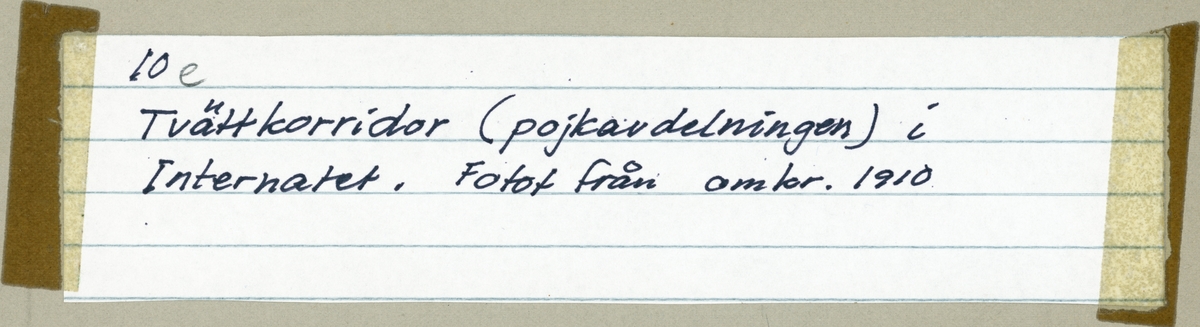 10 e
Tvättkorridor (pojkavdelningen) i
Internatet. Fotot från omkr. 1910